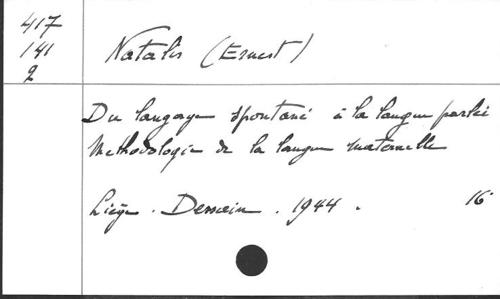 417
141
2
Natalis (Ernest)
Du langage spontané à la langue parlée
Méthodologie de la langue maternelle
Liège . Dessain . 1944 . 16°